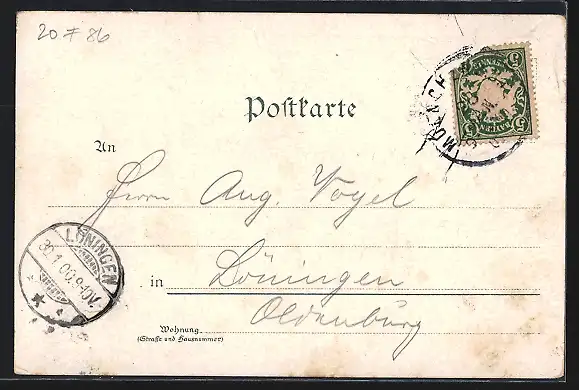 20 F 86
Postkarte
MÜNCHEN
BAYERN
An
Herrn Aug. Vogel
LÖNINGEN
30.1.00.9-10V.
in Löningen
Oldenburg
Wohnung
(Straße und Hausnummer)